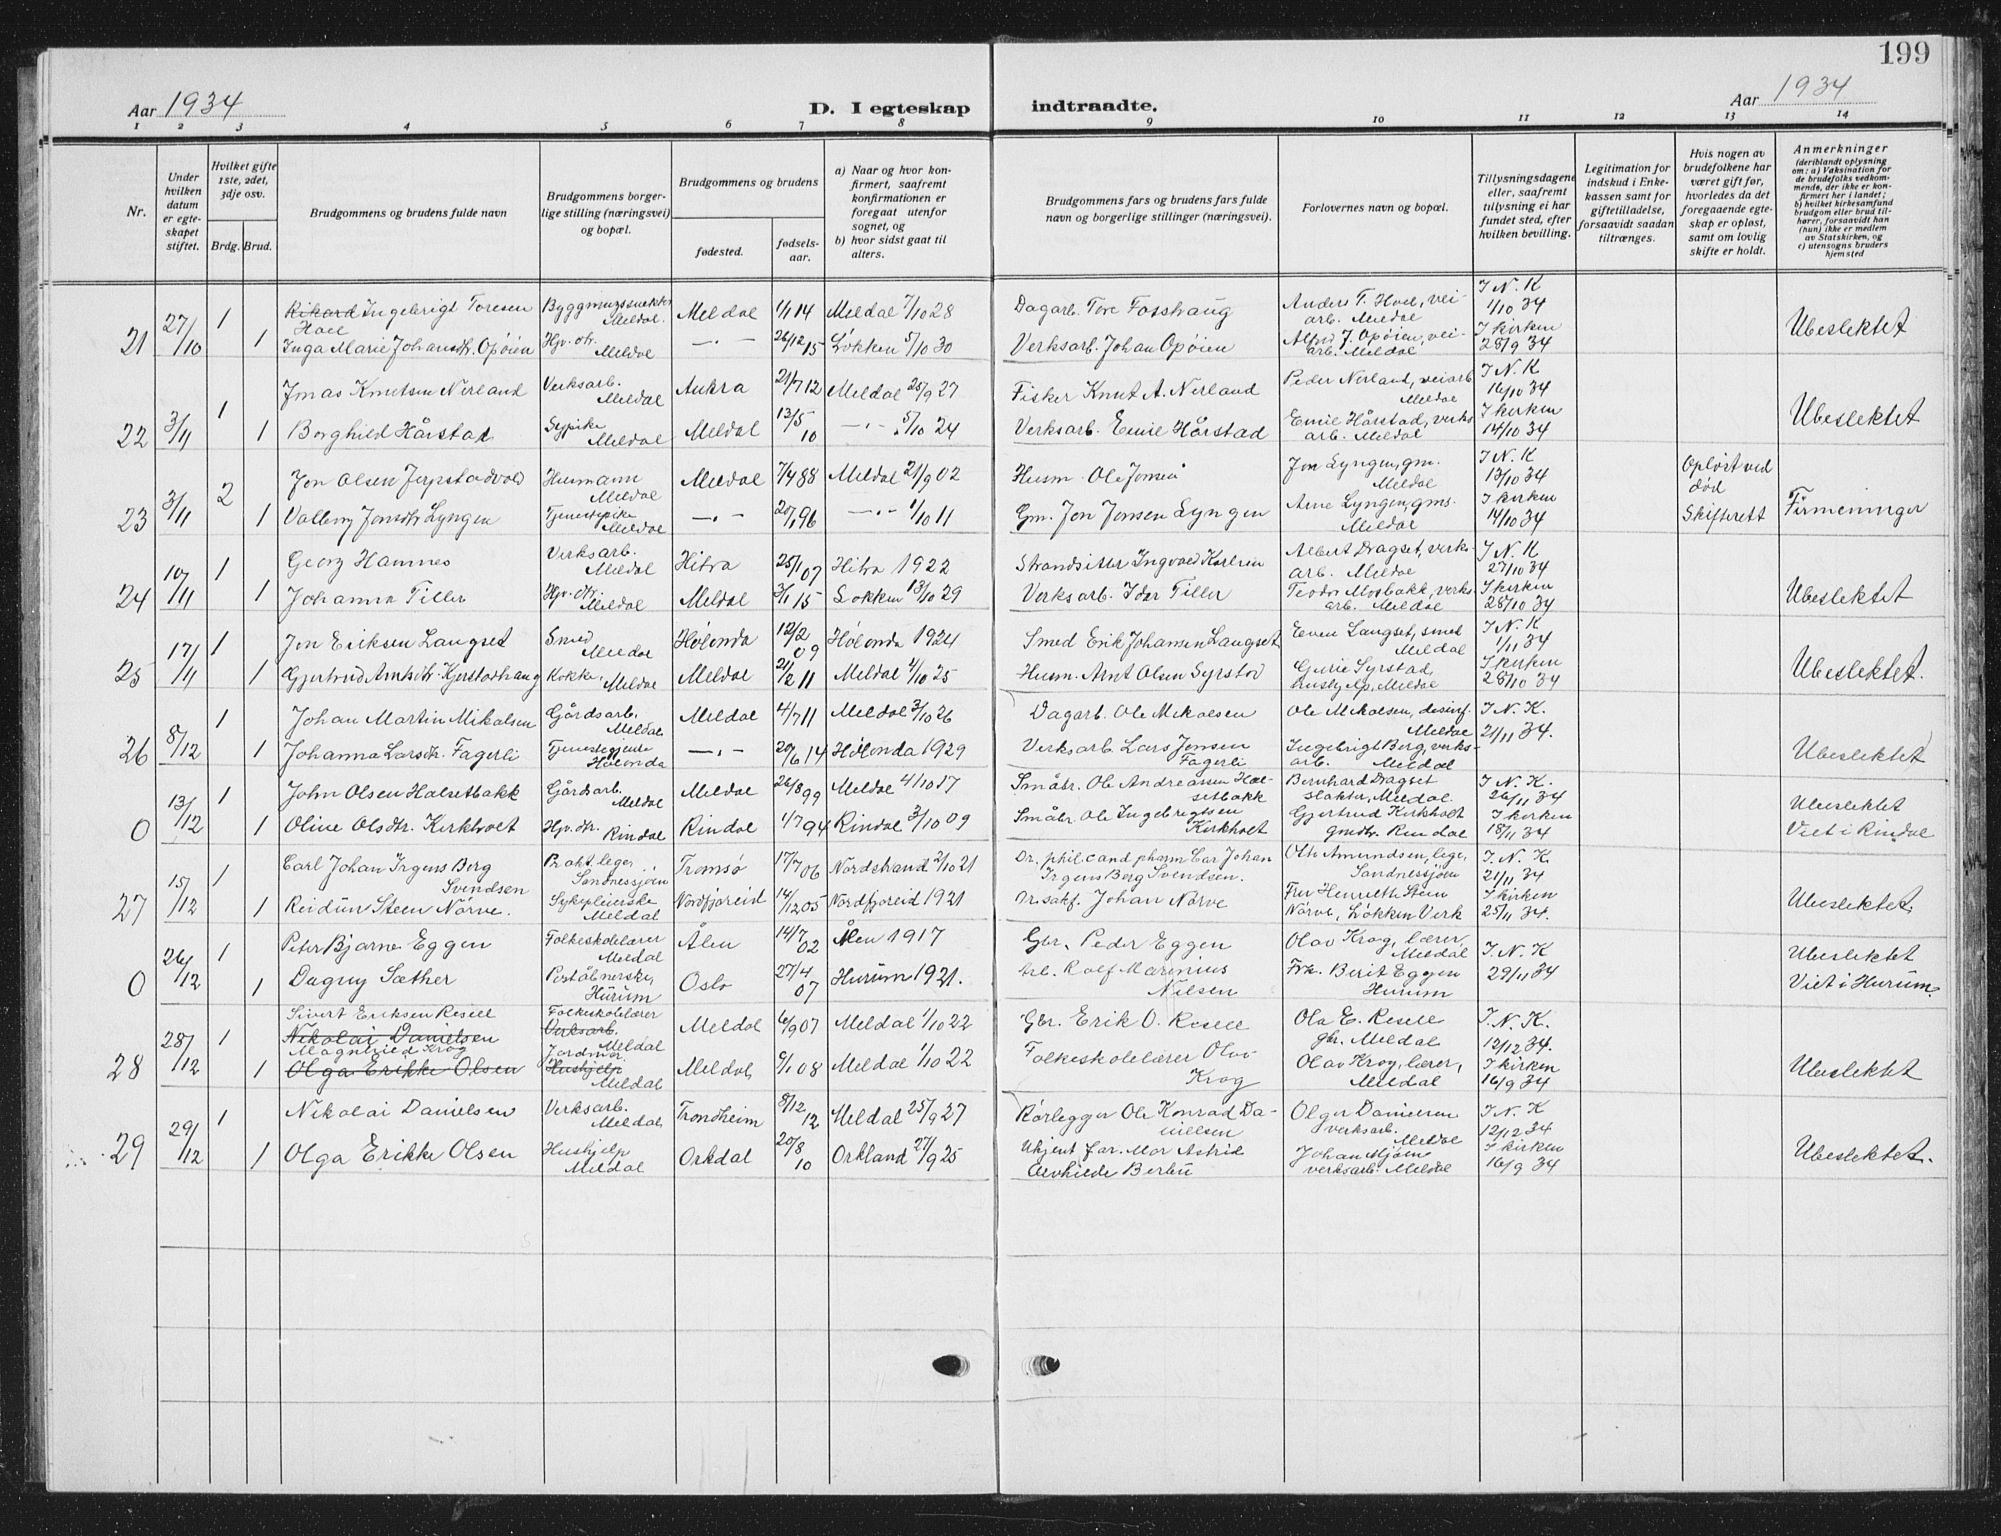 199
Aar 1934
D. I egteskap indtraadte.
Aar 1934
1 2 3 4 5 6 7 8 9 10 11 12 13 14
Nr.
Under hvilken datum er egteskapet stiftet.
Hvilket gifte 1ste, 2det, 3dje osv.
Brdg. Brud.
Brudgommens og brudens fulde navn
Brudgommens borgerlige stilling (næringsvei) og bopæl.
Brudgommens og brudens
fødested.
fødselsaar.
a) Naar og hvor konfirmert, saafremt konfirmationen er foregaat utenfor sognet, og
b) hvor sidst gaat til alters.
Brudgommens fars og brudens fars fulde navn og borgerlige stillinger (næringsvei).
Forlovernes navn og bopæl.
Tillysningsdagene eller, saafremt tillysning ei har fundet sted, efter hvilken bevilling.
Legitimation for indskud i Enkekassen samt for giftetilladelse, forsaavidt saadan tiltrænges.
Hvis nogen av brudefolkene har været gift før, hvorledes da det foregaaende egteskap er opløst, samt om lovlig skifte er holdt.
Anmerkninger
(deriblandt oplysning om: a) Vaksination for de brudefolks vedkommende, der ikke er konfirmert her i landet; b) hvilket kirkesamfund brudgom eller brud tilhører, forsaavidt han (hun) ikke er medlem av Statskirken, og c) utensogns bruders hjemsted
21 27/10 1 Rikard Ingebrigt Toresen Hoel Meldal. Meldal 1/1 14 Meldal 7/10 28 Dagarb. Tore Fosshaug Anders T. Hoel, veiarb. Meldal I N. K 1/10 34
1 Inga Marie Johansdtr. Opøien Hjv. dtr. Meldal —"— 26/12 15 Løkken 5/10 30 Verksarb. Johan Opøien Alfred J. Opøien, veiarb. Meldal I kirken 28/9 34 Ubeslektet
22 3/11 1 Jonas Knutsen Nerland Verksarb. Meldal Aukra 21/7 12 Meldal 25/9 27 Fisker Knut A. Nerland Peder Nerland, veiarb Meldal I N. K 16/10 34
1 Borghild Hårstad Sypike Meldal Meldal 13/5 10 —"— 5/10 24 Verksarb. Emil Hårstad Emil Hårstad, verksarb. Meldal I kirken 14/10 34 Ubeslektet
23 3/11 2 Jon Olsen Jerpstadvold Husmann Meldal Meldal 7/4 88 Meldal 21/9 02 Husm. Ole Jonsen Jon Lyngen, gm. Meldal I N. K 13/10 34 Opløst ved død
1 Valborg Jonsdtr Lyngen Tjenestepike Meldal —"— 20/1 96 —"— 1/10 11 Gm. Jon Jonsen Lyngen Arne Lyngen, gms. Meldal I kirken 14/10 34 Skifterett Firmeninger
24 10/11 1 Georg Hamnes Verksarb. Meldal Hitra 25/1 07 Hitra 1922 Strandsitter Ingvald Karlsen Albert Dragset, verksarb. Meldal I N. K 27/10 34
1 Johanna Tiller Hjv. dtr. Meldal Meldal 3/1 15 Løkken 13/10 29 Verksarb. Idar Tiller Teodor Mosbakk, verksarb. Meldal I kirken 28/10 34 Ubeslektet
25 17/11 1 Jon Eriksen Langset Smed Meldal Hølonda 12/2 09 Hølonda 1924 Smed Erik Johansen Langset Even Langset, smed Meldal I N. K 1/11 34
1 Gjertrud Arntsdtr. Kjerstadhaug Kokke, Meldal Meldal 21/2 11 Meldal 4/10 25 Husm. Arnt Olsen Syrstad Gurie Syrstad, hushjelp, Meldal I kirken 28/10 34 Ubeslektet.
26 8/12 1 Johan Martin Mikalsen Gårdsarb. Meldal Meldal 4/7 11 Meldal 3/10 26 Dagarb. Ole Mikalsen Ole Mikalsen, Meldal I. N. K. 21/11 34.
1 Johanna Larsdtr. Fagerli Hølonda —"— 20/6 14 Hølonda 1929 Verksarb. Lars Jensen Fagerli Ingebrigt Berg, verksarb. Meldal Ubeslektet
0 13/12 1 John Olsen Halsetbakk Gårdsarb. Meldal Meldal 26/8 99 Meldal 4/10 17 Småbr. Ole Andreassen Halsetbakk Bernhard Dragset slakter, Meldal. I. N. K. 26/11 34 Ubeslektet
1 Oline Olsdtr. Kirkholt Hjv. dtr. Rindal Rindal 4/7 94 Rindal 3/10 09 Småbr. Ole Ingebrigtsen Kirkholt Gjertrud Kirkholt gmdtr. Rindal I kirken 18/11 34 Viet i Rindal
27 15/12 1 Carl Johan Irgens Berg Svendsen Prakt. lege, Sandnessjøen Tromsø 17/7 06 Nordstrand 2/10 21 Dr. phil. cand pharm Car Johan Irgens Berg Svendsen. Otto Amundsen, lege, Sandnessjøen I. N. K. 21/11 34
1 Reidun Steen Nørve. Sykepleierske Meldal Nordfjoreid 14/12 05 Nordfjoreid 1921 Or.sakf. Johan Nørve Fru Henriette Steen Nørve, Løkken Verk I kirken 25/11 34. Ubeslektet.
0 26/12 1 Peter Bjarne Eggen Folkeskolelærer Meldal Ålen 14/7 02 Ålen 1917 Gbr. Peder Eggen Olav Krog, lærer Meldal I. N. K 29/11 34 Ubeslektet
1 Dagny Sæther Poståbnerske, Hurum Oslo 27/4 07 Hurum 1921. Arb. Rolf Marinius Nielsen Frk. Berit Eggen Hurum Viet i Hurum.
28 28/12 1 Sivert Eriksen Resell Nikolai Danielsen Folkeskolelærer Verksarb. Meldal Meldal 6/9 07 Meldal 1/10 22 Gbr. Erik O. Resell Ola E. Resell gbr. Meldal I. N. K. 12/12 34.
1 Magnhild Krog Olga Erikke Olsen Jordmor. Hushjelp Meldal Meldal 6/1 08 Meldal 1/10 22 Folkeskolelærer Olav Krog Olav Krog, lærer, Meldal I kirken 16/9 34 Ubeslektet
29 29/12 1 Nikolai Danielsen Verksarb. Meldal Trondheim 8/12 12 Meldal 25/9 27 Rørlegger Ole Konrad Danielsen Olger Danielsen verksarb. Meldal I N. K 12/12 34
1 Olga Erikke Olsen Hushjelp Meldal Orkdal 20/8 10 Orkland 27/9 25 Ukjent far. Mor Astrid Alvhilde Berbu Johan verksarb. Meldal I kirken 16/9 34 Ubeslektet.